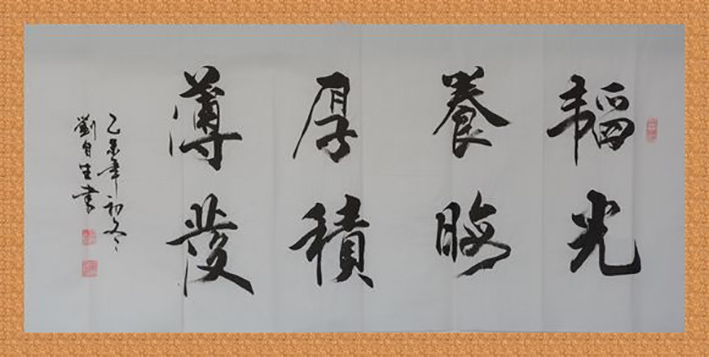 韬光
養晦
厚積
薄发
乙未年初冬
劉自生書